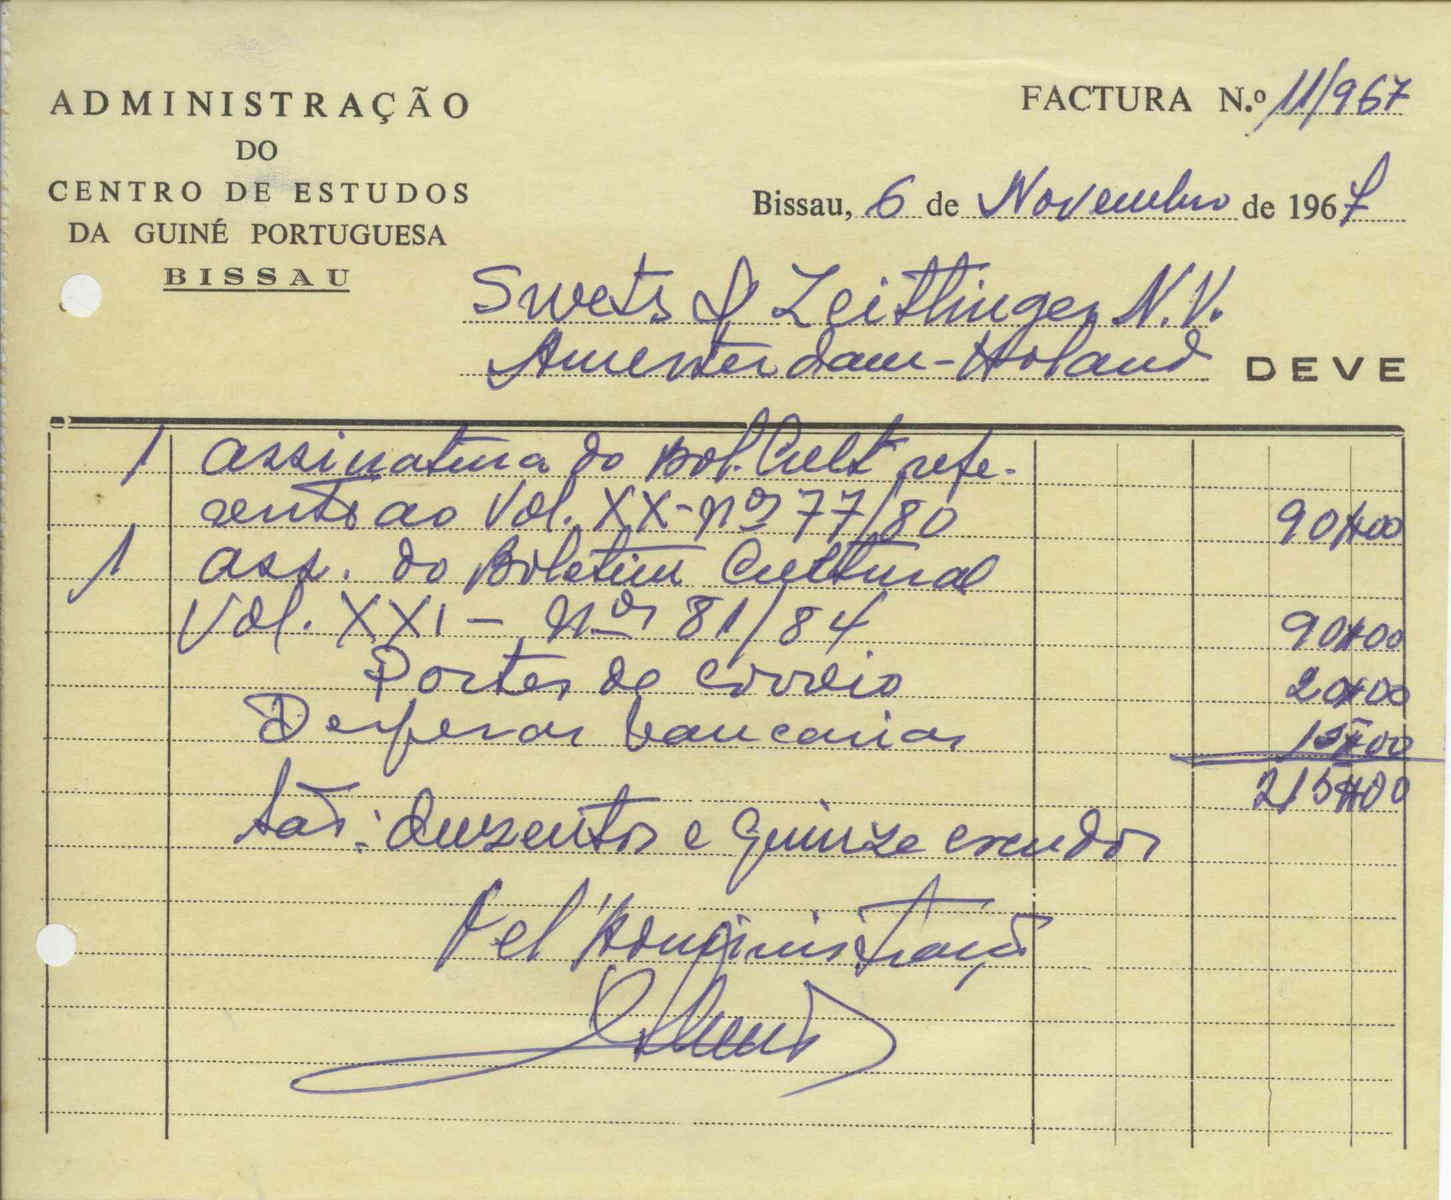 ADMINISTRAÇÃO
DO
CENTRO DE ESTUDOS
DA GUINÉ PORTUGUESA
BISSAU
FACTURA N.º 11/967
Bissau, 6 de Novembro de 1967
Swets & Zeitlinger N.V.
Amesterdam-Holand
DEVE
1 assinatura do Bol. Cult refe-
rente ao Vol. XX-nos 77/80 90$00
1 ass. do Boletim Cultural
Vol. XXI - nos 81/84 90$00
Portes de correio 20$00
Despesas bancarias 15$00
215$00
São: Duzentos e quinze escudos
Pel'Administração